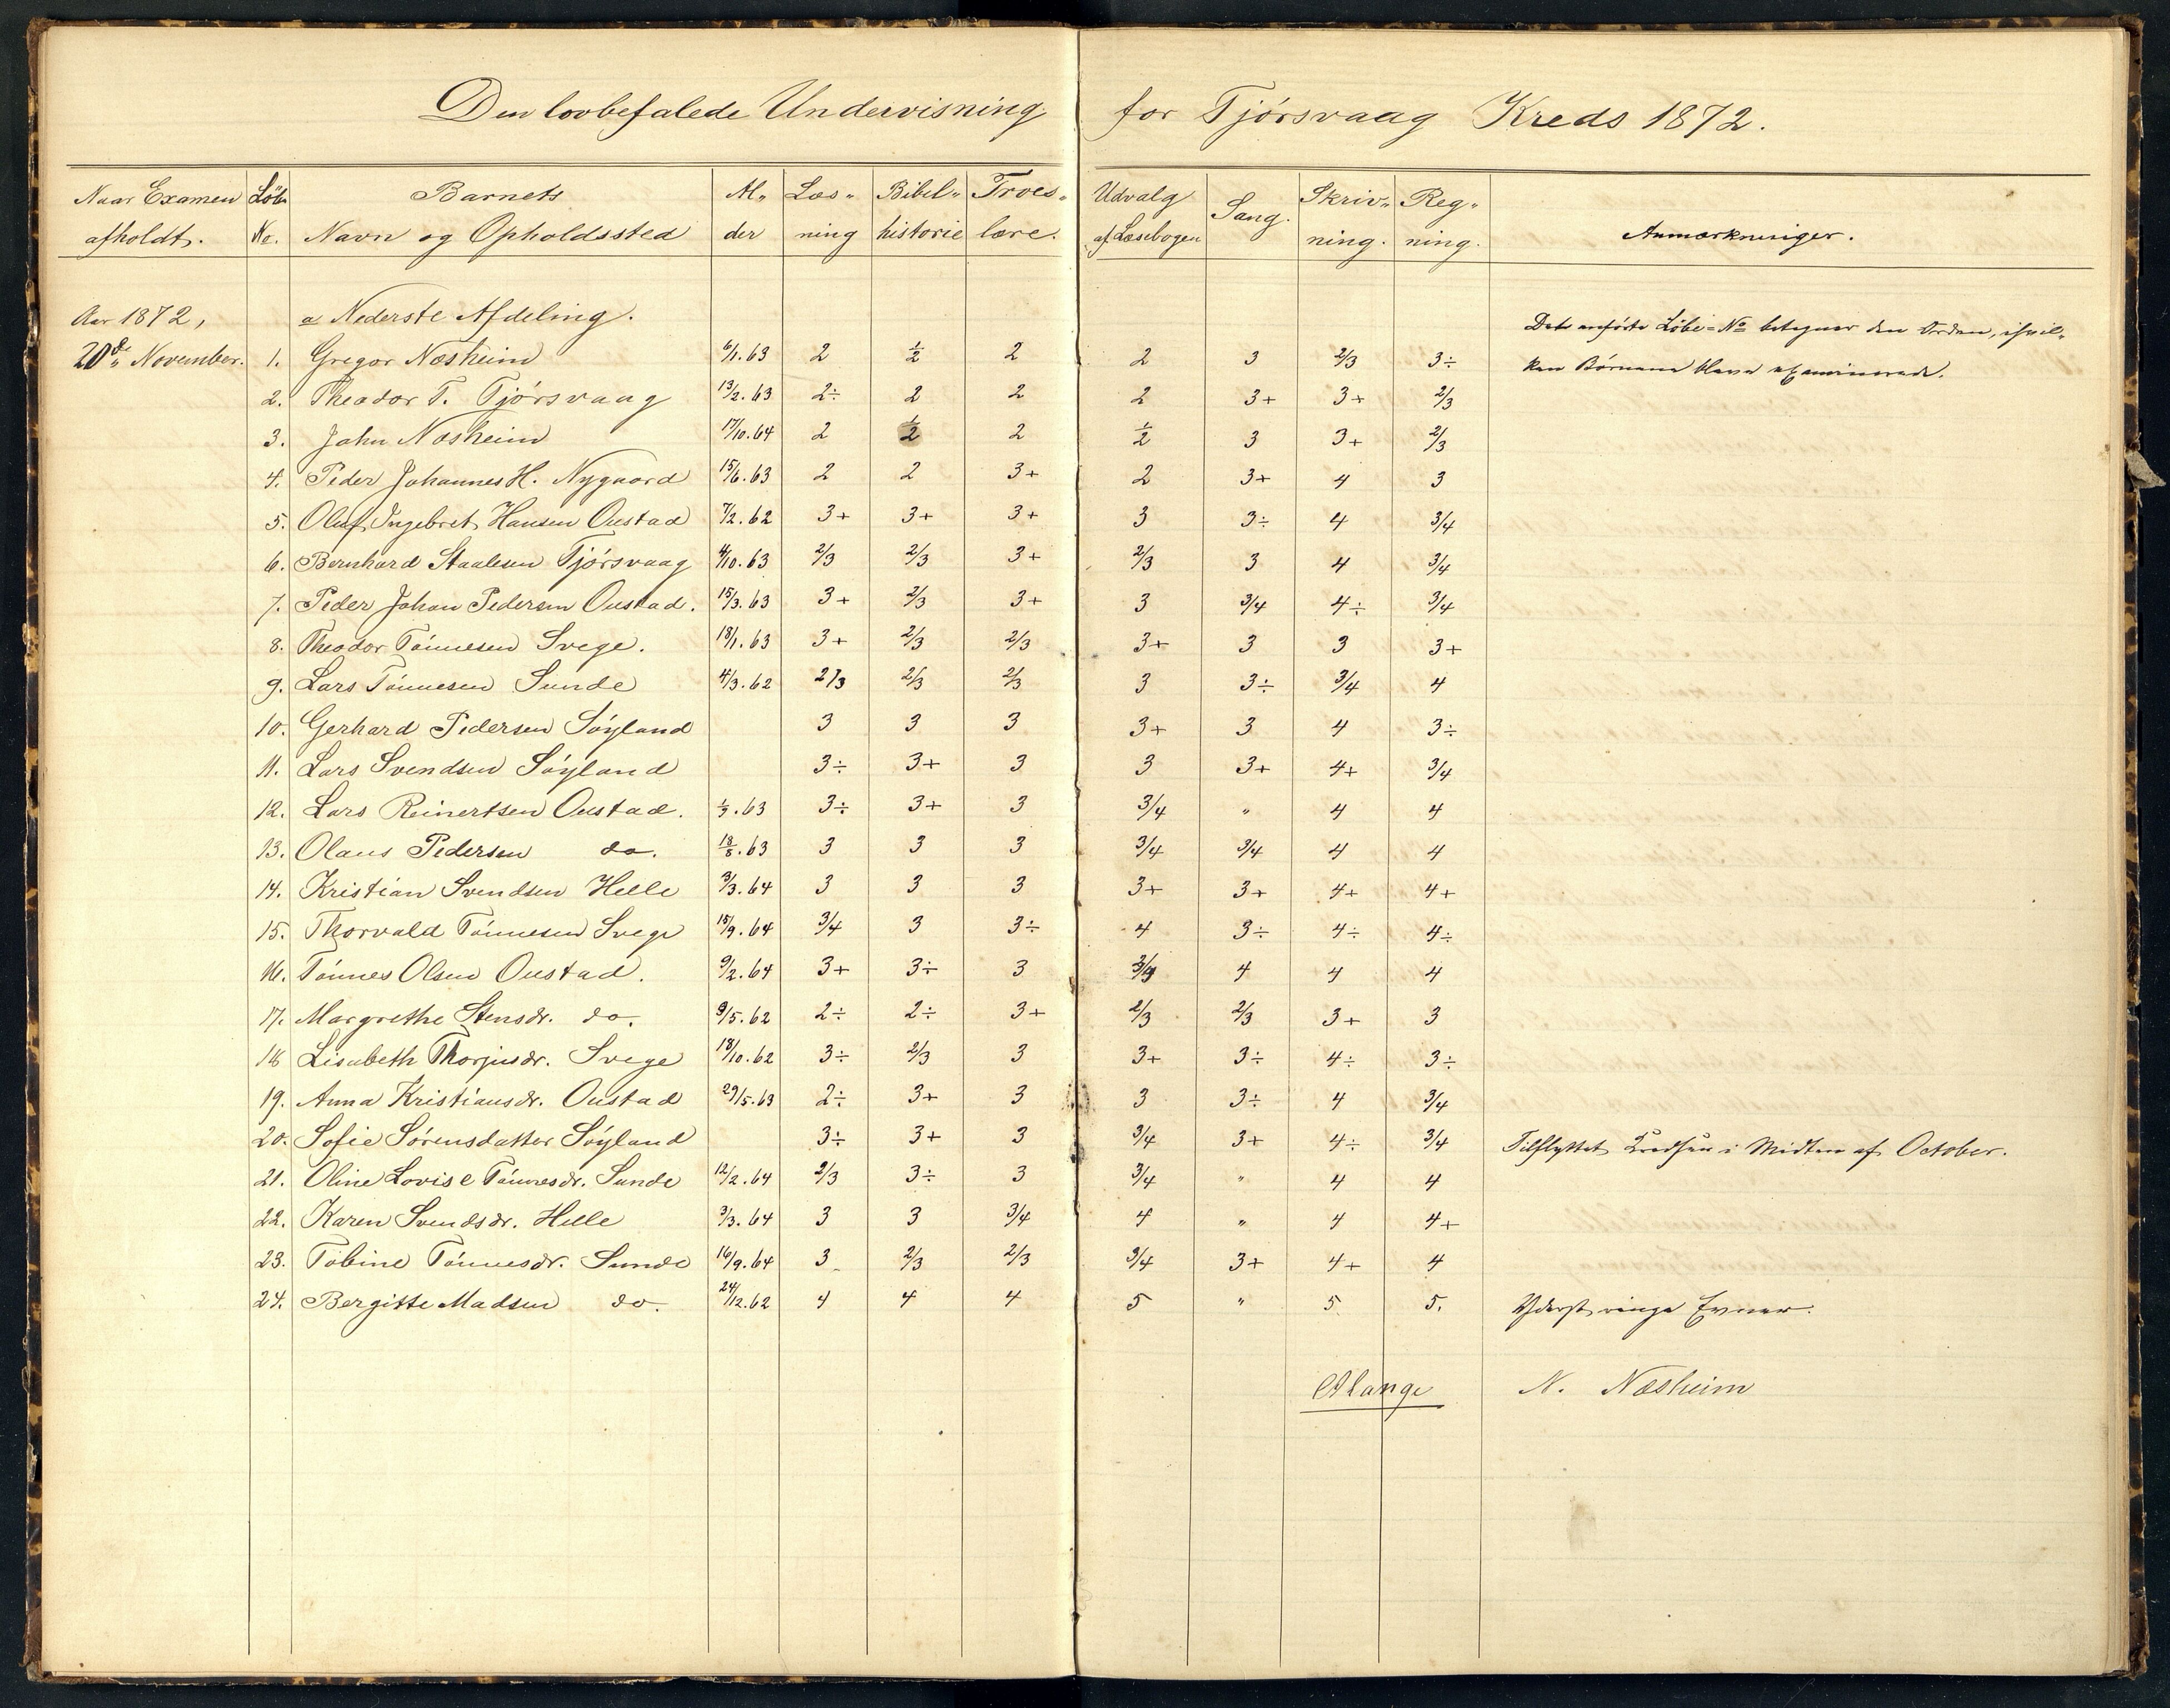 Den lovbefalede Undervisning for Tjörsvaag Kreds 1872.
Naar Examen afholdt. Löbe No. Barnets Navn og Opholdssted Al„ der Læs„ ning Bibel„ historie Troes„ lære. Udvalg af Læsebogen Sang. Skriv„ ning. Reg„ ning. Anmærkninger.
Aar 1872, a Nederste Afdeling. Det anförte Löbe=No betegner den Orden, i hvil„
20de November. 1. Gregor Næsheim 6/1. 63 2 1/2 2 2 3 2/3 3÷ ken Börnene bleve examinerede.
2. Theodor T. Tjörsvaag 13/2. 63 2÷ 2 2 2 3+ 3+ 2/3
3. John Næsheim 17/10. 64 2 1/2 2 1/2 3 3+ 2/3
4. Peder Johannes H. Nygaard 15/6. 63 2 2 3+ 2 3+ 4 3
5. Oluf Ingebret Hansen Oustad 7/2. 62 3+ 3+ 3+ 3 3÷ 4 3/4
6. Bernhard Staalesen Tjörsvaag 4/10. 63 2/3 2/3 3+ 2/3 3 4 3/4
7. Peder Johan Pedersen Oustad. 15/3. 63 3+ 2/3 3+ 3 3/4 4÷ 3/4
8. Theodor Tönnesen Svege. 18/1. 63 3+ 2/3 2/3 3+ 3 3 3+
9. Lars Tönnesen Sunde 4/3. 62 2/3 2/3 2/3 3 3÷ 3/4 4
10. Gerhard Pedersen Söyland 3 3 3 3+ 3 4 3÷
11. Lars Svendsen Söyland 3÷ 3+ 3 3 3+ 4+ 3/4
12. Lars Reinertsen Oustad. 1/3. 63 3÷ 3+ 3 3/4 " 4 4
13. Olaus Pedersen do. 18/8. 63 3 3 3 3/4 3/4 4 4
14. Kristian Svendsen Helle 3/3. 64 3 3 3 3+ 3+ 4+ 4+
15. Thorvald Tönnesen Svege 15/9. 64 3/4 3 3÷ 4 3÷ 4÷ 4÷
16. Tönnes Olsen Oustad. 9/2. 64 3+ 3÷ 3 3/4 4 4 4
17. Margrethe Stensdr. do. 9/5. 62 2÷ 2÷ 3+ 2/3 2/3 3+ 3
18 Lisabeth Thorjusdr. Svege 18/10. 62 3÷ 2/3 3 3+ 3÷ 4÷ 3÷
19. Anna Kristiansdr. Oustad 29/5. 63 2÷ 3+ 3 3 3÷ 4 3/4
20. Sofie Sörensdatter Söyland 3÷ 3+ 3 3/4 3+ 4÷ 3/4 Tilflyttet Kredsen i Midten af October.
21. Oline Lovise Tönnesdr. Sunde 12/2. 64 2/3 3÷ 3 3/4 " 4 4
22. Karen Svendsdr. Helle 3/3. 64 3 3 3/4 4 " 4 4+
23. Tobine Tönnesdr. Sunde 16/9. 64 3 2/3 2/3 3/4 3+ 4+ 4
24. Bergitte Madsen do. 24/12. 62 4 4 4 5 " 5 5. Yderst ringe Evner.
N. Næsheim